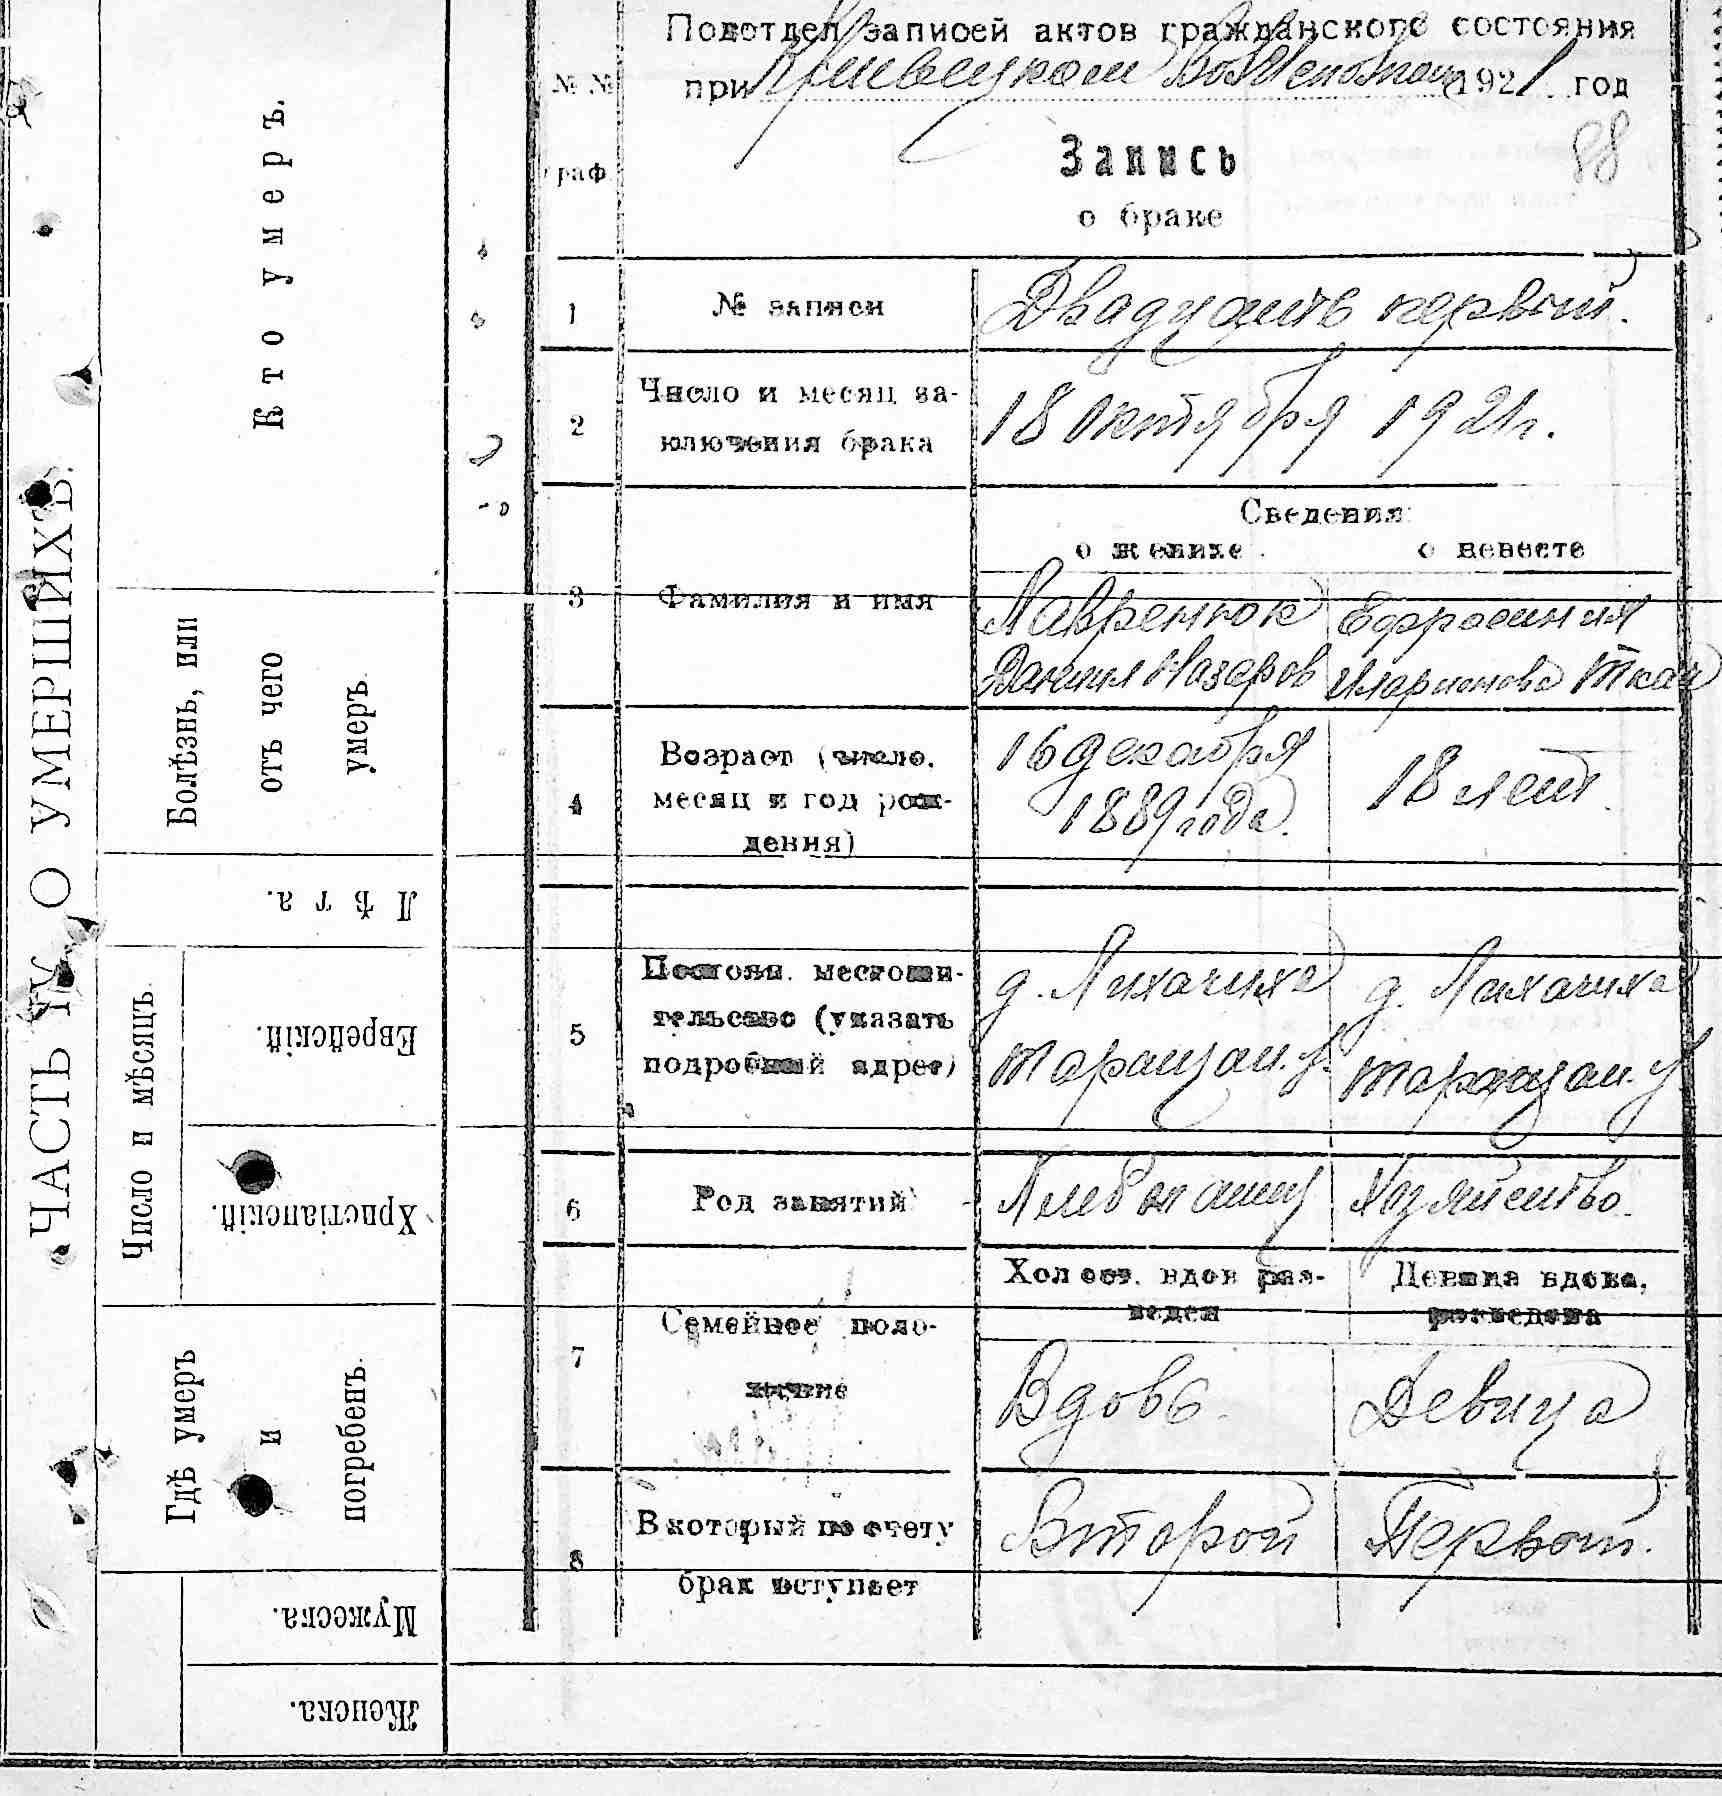 ЧАСТЬ IV О УМЕРШИХЪ.
Кто умеръ.
Болѣзнь, или
отъ чего
умеръ.
Лѣта.
Число и мѣсяцъ.
Еврейскій.
Христіанскій.
Гдѣ умеръ
и
погребенъ.
Мужеска.
Женска.
Подотдел записей актов гражданского состояния
при 1921 год
88
№№
граф
Запись
о браке
1 № записи Двадцать первый.
2 Число и месяц за-
ключения брака
18 Октября 1921 г.
Сведения
о женихе о невесте
3 Фамилия и имя
Лавренюк
Даниил Назаров
Ефросиния
Иларионова Ткач
4 Возраст (число,
месяц и год рож-
дения)
16 декабря
1889 года.
18 лет.
5 Постоян. местожи-
тельство (указать
подробный адрес)
д. Лихачиха
Таращан. у.
д. Лихачиха
Таращан. у
6 Род занятий
Хлебопашец
Хозяйство.
7 Семейное поло-
жение
Холост. вдов раз-
веден
Девица вдова,
разведена
Вдовъ.
Девица
8 В который по счету
брак вступает
Второй
Первый.